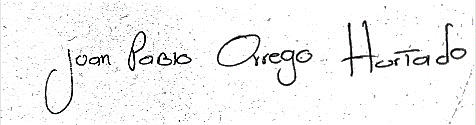 Juan Pablo Orrego Hurtado